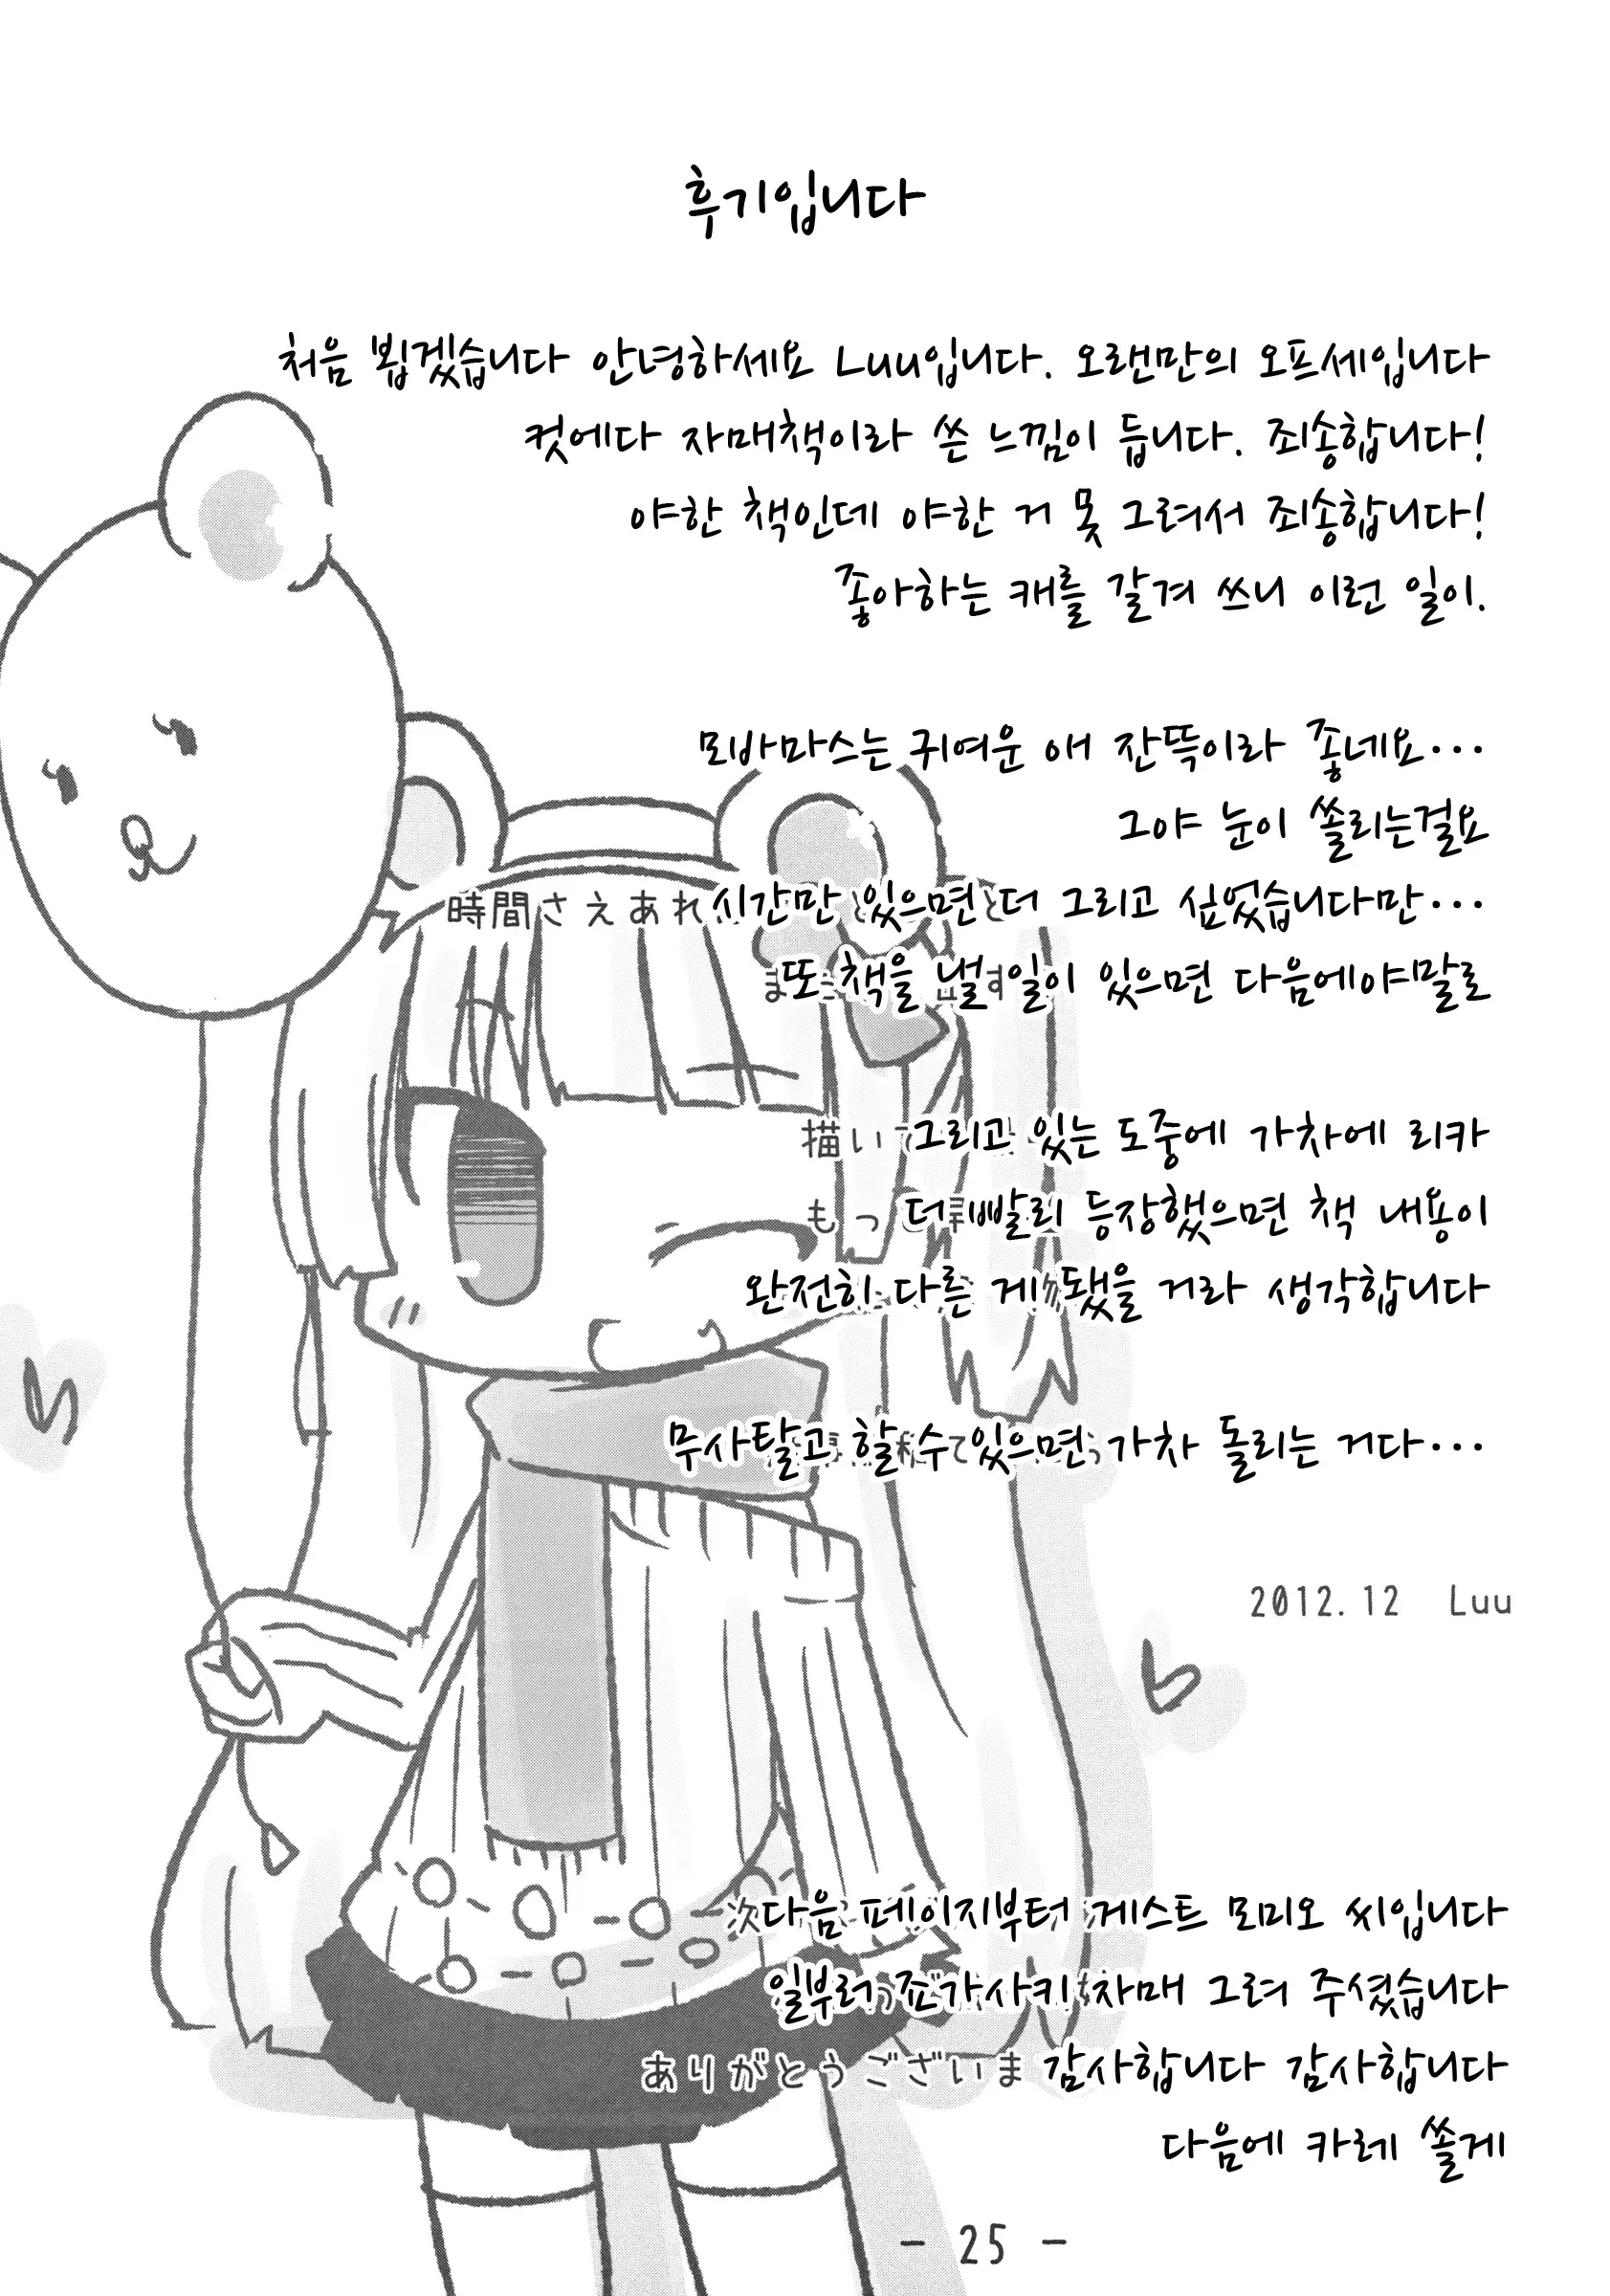 후기입니다
처음 뵙겠습니다 안녕하세요 Luu입니다. 오랜만의 오프셋입니다
컷에다 자매책이라 쓴 느낌이 듭니다. 죄송합니다!
야한 책인데 야한 거 못 그려서 죄송합니다!
좋아하는 캐를 갈겨 쓰니 이런 일이.
모바마스는 귀여운 애 잔뜩이라 좋네요···
그야 눈이 쏠리는걸요
時間さえあれ 시간만 있으면 더 그리고 싶었습니다만···
ま 또 책을 낼 일이 있으면 다음에야말로
描い 그리고 있는 도중에 가차에 리카
もっ 더 빨리 등장했으면 책 내용이
완전히 다른 게 됐을 거라 생각합니다
무사탈고 할 수 있으면 가차 돌리는 거다···
2012.12 Luu
次 다음 페이지부터 게스트 모미오 씨입니다
일부러 죠가사키 자매 그려 주셨습니다
ありがとうございま 감사합니다 감사합니다
다음에 카레 쏠게
- 25 -